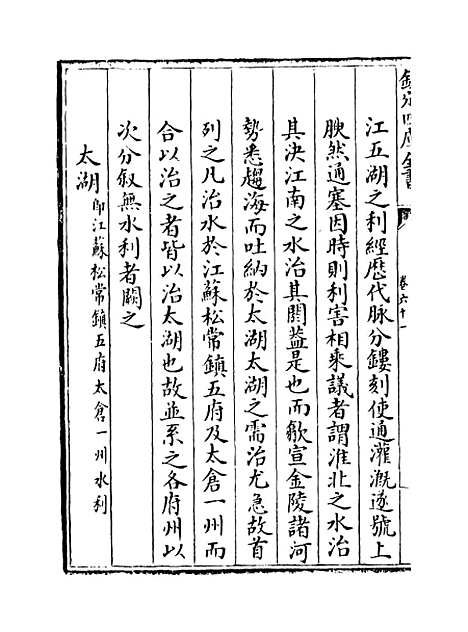 欽定四庫全書
卷六十一
江五湖之利經歷代脉分鏤刻使通灌漑遂號上
腴然通塞因時則利害相乘議者謂淮北之水治
其決江南之水治其閼葢是也而歙宣金陵諸河
勢悉趨海而吐納於太湖太湖之需治尤急故首
列之凡治水於江蘇松常鎮五府及太倉一州而
合以治之者皆以治太湖也故並系之各府州以
次分叙無水利者闕之
太湖即江蘇松常鎮五府太倉一州水利